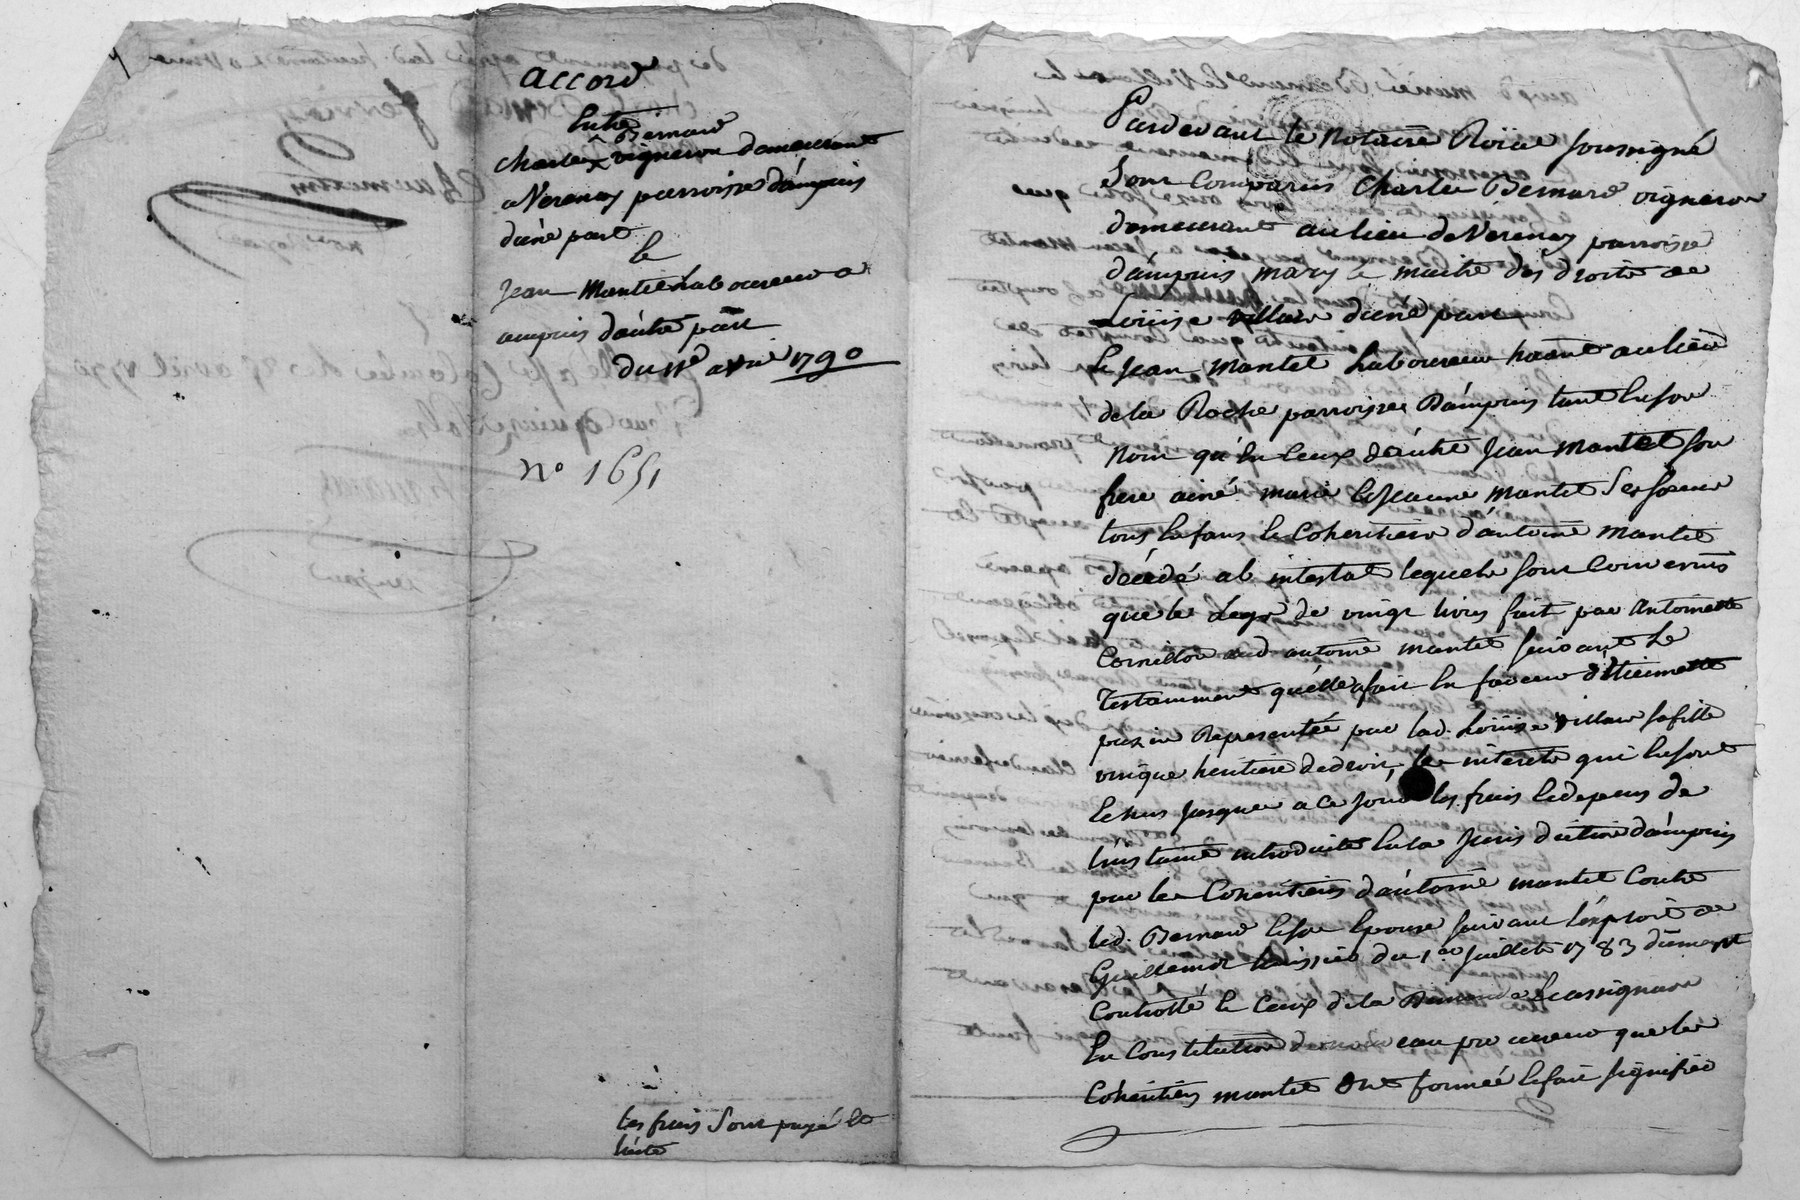 accord
Entre
Bernard
Charles vigneron demeurant
a Verenay parroisse d'ampuis
d'une part
Et
Jean Mantel Laboureur a
ampuis d'autre part
du 11e avril 1790
n° 1651
Les frais Sont payé Et
Pardevant le Notaire Roial soussigné
Sont Comparus Charles Bernard vigneron
demeurant au lieu de Verenay parroisse
d'ampuis mary et maitre des droits de
Loüise villard d'une part
Et Jean Mantel Laboureur habitant au lieu
de la Roche parroisse d'ampuis tant En son
Nom qu'En Ceux d'autre Jean Mantel son
frere ainé marie Et Jeanne Mantel Ses soeurs
tous Enfans Et Coheritiers d'antoine Mantel
décedé ab intestat lequels sont Convenus
que le Legs de vingt livres fait par antoinette
Cornillon aud antoine mantel suivant Le
Testamment qu'elle a fait En faveur d'Etiennette
Representée par lad. Loüise villard sa fille
unique heritiere de droit, les interets qui En sont
Echus jusques a ce jour les frais Et depens de
L'instance introduite En la Jurisdiction d'ampuis
par les Coheritiers d'antoine mantel Contre
led. Bernard Et son Epouse suivant l'exploit de
Guillemot huissier du 1er Juillet 1783 dument
Controllé Et Ceux de la Demande En assignation
En Constitution de nouveau procureur que les
Cohéritiers mantel Ont formée Et fait signifier